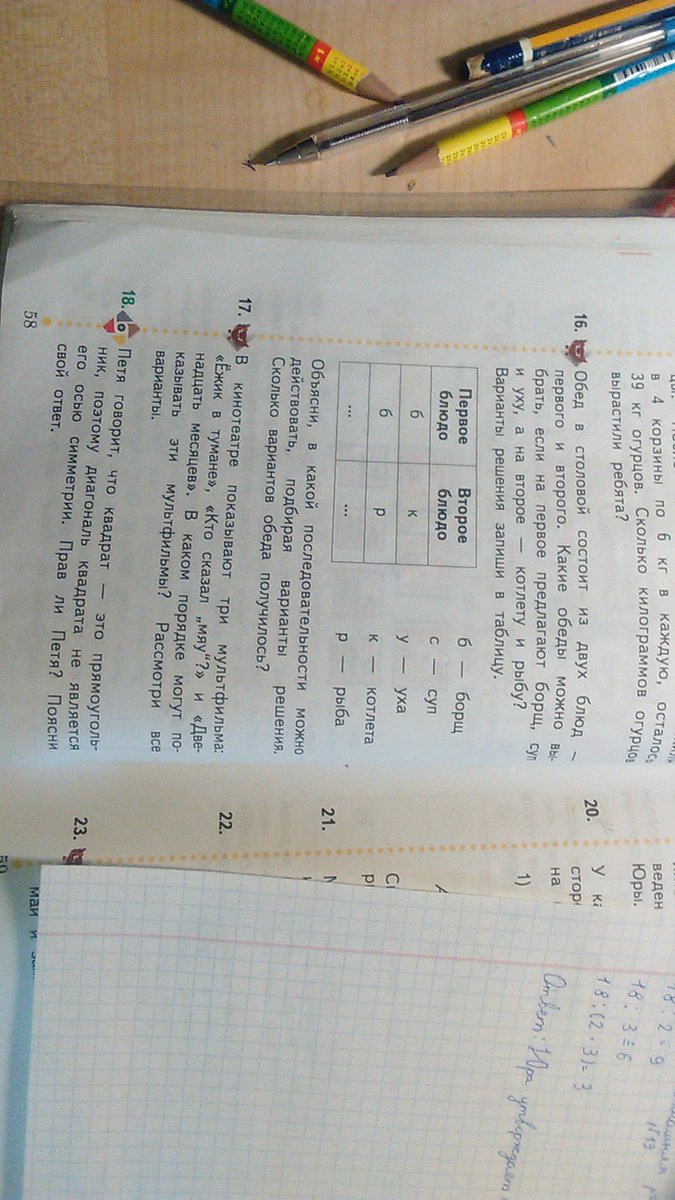 в 4 корзины по 6 кг в каждую, осталось
39 кг огурцов. Сколько килограммов огурцов
вырастили ребята?
16. Обед в столовой состоит из двух блюд —
первого и второго. Какие обеды можно вы-
брать, если на первое предлагают борщ, суп
и уху, а на второе — котлету и рыбу?
Варианты решения запиши в таблицу.
Первое блюдо Второе блюдо
б к
б р
... ...
б — борщ
с — суп
у — уха
к — котлета
р — рыба
Объясни, в какой последовательности можно
действовать, подбирая варианты решения.
Сколько вариантов обеда получилось?
17. В кинотеатре показывают три мультфильма:
«Ёжик в тумане», «Кто сказал „мяу“?» и «Две-
надцать месяцев». В каком порядке могут по-
казывать эти мультфильмы? Рассмотри все
варианты.
18. Петя говорит, что квадрат — это прямоуголь-
ник, поэтому диагональ квадрата не является
его осью симметрии. Прав ли Петя? Поясни
свой ответ.
58
веден
Юры.
20. У ка
стор
на
1)
21.
22.
23.
59
май и
N19
18 : 2 = 9
18 : 3 = 6
18 : (2 · 3) = 3
Ответ: Юра утверждает